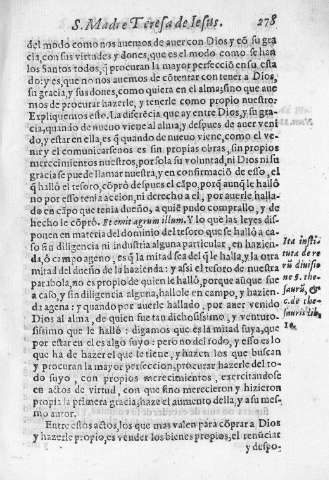 S. Madre Teresa de Iesus. 278
del modo como nos auemos de auer con Dios y cõ su gra
cia, con sus virtudes y dones, que es el modo como se han
los Santos todos, q̃ procuran la mayor perfecció en su esta
do: y es, que no nos auemos de cótentar con tener a Dios,
su gracia, y sus dones, como quiera en el alma; sino que aue
mos de procurar hazerle, y tenerle como propio nuestro.
Expliquemos esto. La diferécia que ay entre Dios, y su gra-
cia, quando de nueuo viene al alma, y despues de auer veni
do, y estar en ella, es q̃ quando de nueuo viene, como el ve-
nir y el comunicarsenos es sin propias obras, sin propios
merecimientos nuestros, por sola su voluntad, ni Dios ni su
gracia se puede llamar nuestra, y en confirmació de esso, el
q̃ halló el tesoro, cópró despues el cápo, porq̃ aunq̃ le halló
no por esso tenia accion, ni derecho a el, por auerle halla-
do en cápo que tenia dueño, a quié pudo comprallo, y de
hecho le cópró. Et emit agrum illum. Y lo que las leyes dis-
ponen en materia del dominio del tesoro que se halló a ca-
so sin diligencia ni industria alguna particular, en hazien-
da, ó campo ageno, es q̃ la mitad sea del q̃ le halla, y la otra
mitad del dueño de la hazienda: y assi el tesoro de nuestra
parabola, no es propio de quien le halló, porque aũque fue
a caso, y sin diligencia alguna, hallole en campo, y hazien-
da agena: y quando por auerle hallado, por auer venido
Dios al alma, de quien fue tan dichosissimo, y venturo-
sissimo que le halló: digamos que es la mitad suya, que
por estar en el es algo suyo: pero no del todo, y esso es lo
que ha de hazer el que le tiene, y hazen los que buscan
y procuran la mayor perfeccion, procurar hazerle del to
do suyo, con propios merecimientos, exercitandose
en actos de virtud, con que sino merecieron y hizieron
propia la primera gracia, haze el aumento della, y a su mes-
mo autor.
Entre estos actos, los que mas valen para cóprar a Dios
y hazerle propio, es vender los bienes propios, el renúciar
y despo-
Ita insti
tuta de re
rũ diuisio
ne §. the-
saurũ, &
C. de the-
sauris lib.
10.